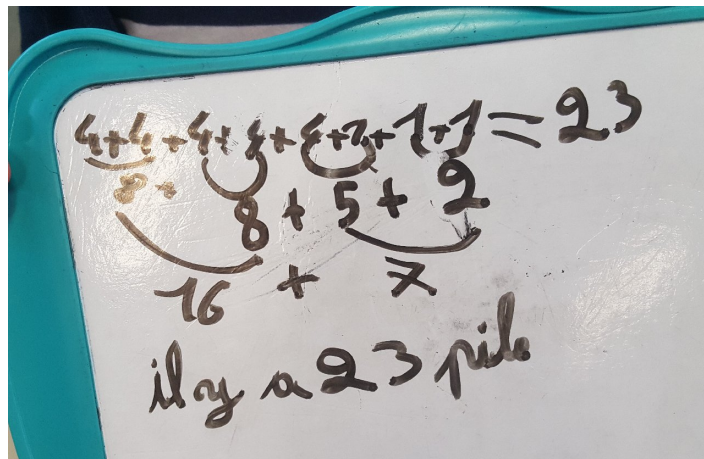 4+4+4+4+4+1+1+1=23
8+8+5+2
16+7
il y a 23 pile